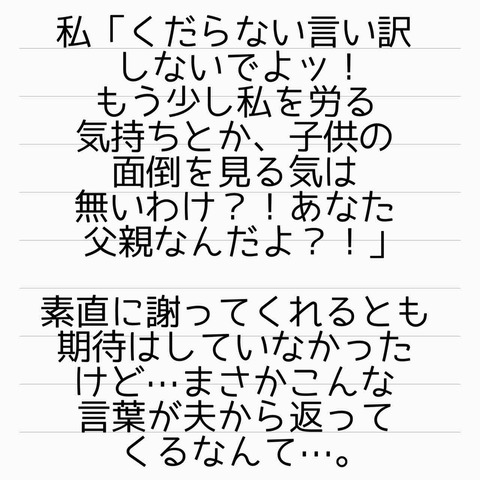 私「くだらない言い訳
しないでよッ！
もう少し私を労る
気持ちとか、子供の
面倒を見る気は
無いわけ？！あなた
父親なんだよ？！」
素直に謝ってくれるとも
期待はしていなかった
けど…まさかこんな
言葉が夫から返って
くるなんて…。